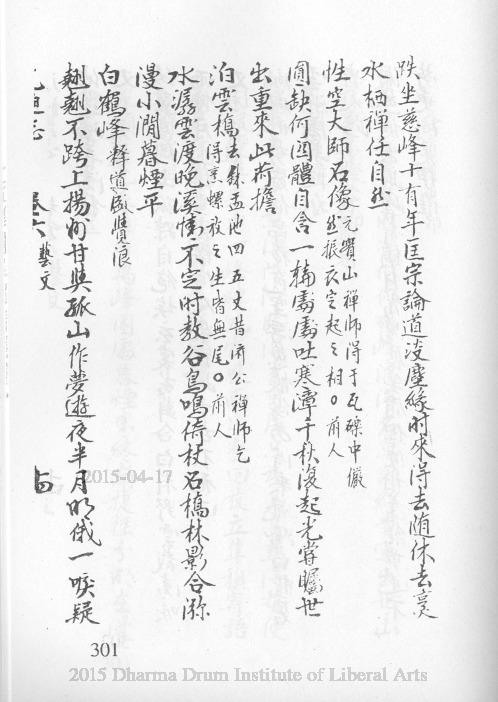 趺坐慈峰十有年匡宗論道沒塵緣时來得去随休去
水栖禅任自然
性空大師石像元賓山禪師得于瓦礫中儼然振衣定起之相○前人
圓缺何因體自含一輪吐寒潭千秋復起光掌矚世
出重來此荷擔
泊雲橋去鉢盂池四五丈昔濟公禪師乞得烹螺放之生皆無尾○前人
水潺雲渡晚溪情不定时教谷鳥鳴倚杖石橋林影合
漫小澗暮煙平
白鶴峰釋道
翹翹不跨上揚州甘與孤山作夢遊夜半月明俄一唳疑
卷六 藝文
2015-04-17
301
2015 Dharma Drum Institute of Liberal Arts